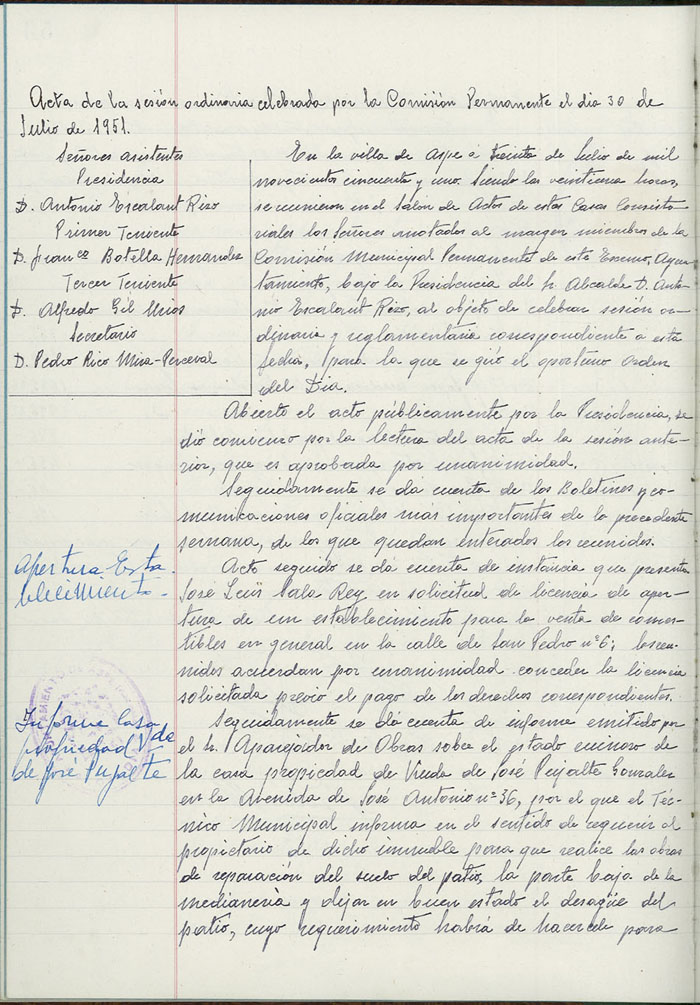 Acta de la sesión ordinaria celebrada por la Comisión Permanente el dia 30 de
Julio de 1951.
Señores asistentes
Presidencia
D. Antonio Escalant Rizo
Primer Teniente
D. Franco Botella Hernandez
Tercer Teniente
D. Alfredo Gil Mrios
Secretario
D. Pedro Rico Mira-Perceval
En la villa de Aspe a treinta de Julio de mil
novecientos cincuenta y uno. Siendo las veintiuna horas,
se reunieron en el Salón de Actos de estas Casas Consisto-
riales los Señores anotados al margen miembros de la
Comisión Municipal Permanente de este Excmo. Ayun-
tamiento, bajo la Presidencia del Sr. Alcalde D. Anto-
nio Escalant Rizo, al objeto de celebrar sesión or-
dinaria y reglamentaria correspondiente a esta
fecha, para la que se giró el oportuno Orden
del Dia.
Abierto el acto públicamente por la Presidencia, se
dió comienzo por la lectura del acta de la sesión ante-
rior, que es aprobada por unanimidad.
Seguidamente se dá cuenta de los Boletines y co-
municaciones oficiales más importantes de la precedente
semana, de los que quedan enterados los reunidos.
Apertura Esta-
blecimiento.-
Acto seguido se da cuenta de instancia que presenta
José Luis Sala Rey en solicitud de licencia de aper-
tura de un establecimiento para la venta de comes-
tibles en general en la calle de San Pedro nº 6; los reu-
nidos acuerdan por unanimidad conceder la licencia
solicitada previo el pago de los derechos correspondientes.
Informe Casa
propiedad Vda
de José Pujalte
Seguidamente se dá cuenta de informe emitido por
el Sr. Aparejador de Obras sobre el estado ruinoso de
la casa propiedad de Viuda de José Pujalte Gonzalez
en la Avenida de José Antonio nº 36, por el que el Téc-
nico Municipal informa en el sentido de requerir al
propietario de dicho inmueble para que realice las obras
de reparación del suelo del patio, la parte baja de la
medianería y dejar en buen estado el desagüe del
patio, cuyo requerimiento habrá de hacersele para